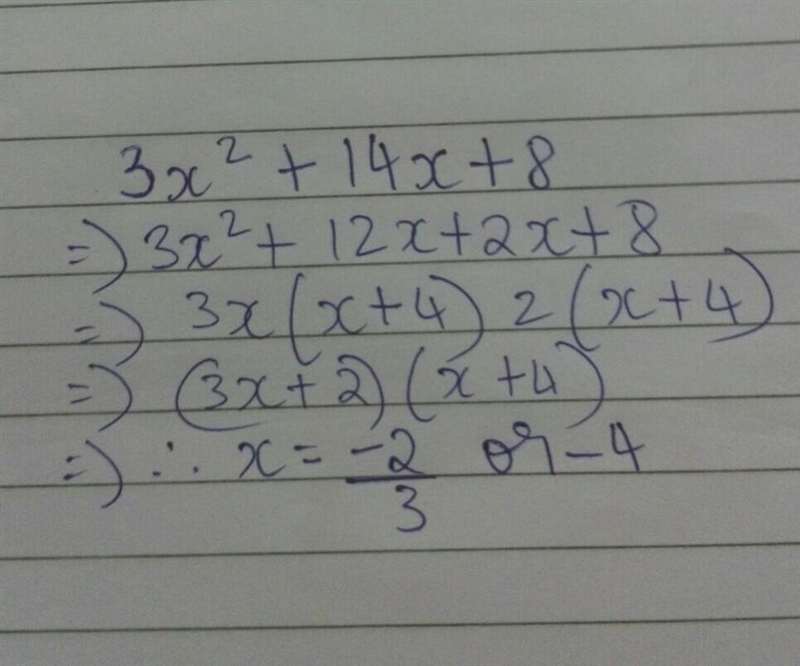 3x² + 14x + 8
=) 3x² + 12x + 2x + 8
=) 3x(x+4) 2(x+4)
=) (3x+2)(x+4)
=) ∴ x = -2/3 or -4